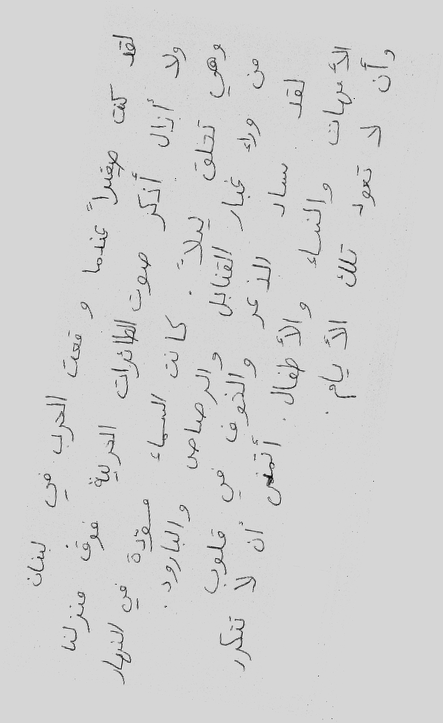 لقد كنت صغيراً عندما وقعت الحرب في لبنان
ولا أزال أذكر صوت الطائرات الحربية فوق منزلنا
وهي تحلق ليلاً. كانت السماء مسودة في النهار
من وراء غبار القنابل والرصاص والبارود.
لقد ساد الذعر والخوف في قلوب
الأمهات والنساء والأطفال. أتمنى أن لا تتكرر
وأن لا تعود تلك الأيام.